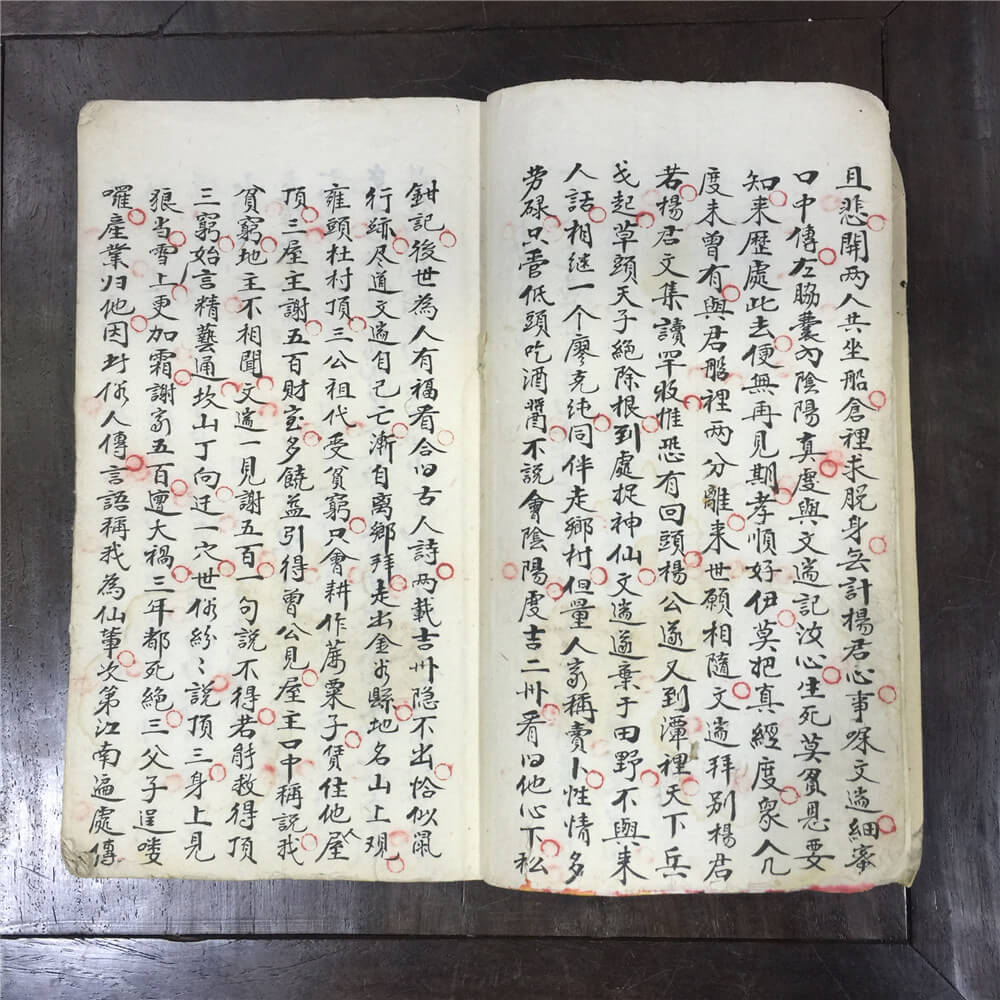 且悲闻两人共坐船倉裡求脱身無計楊君心事㖼文遄細密
口中傳左脇囊内陰陽真虔與文遄記汝心生死莫負恩要
知来歷處此去便無再見期孝順好伊莫把真經度衆人几
度未曾有與君船裡两分離来世願相隨文遄拜别楊君
若楊君文集讀罕收惟恐有回頭楊公遂又到潭裡天下兵
戈起草頭天子絕除根到處捉神仙文遄遂棄于田野不與来
人話相継一个廖克纯同伴走鄉村但量人家稱賣卜性情多
劳碌只管低頭吃酒醬不說會陰陽虔吉二卅看旧他心下松
鉗記後世為人有福看合旧古人詩两载吉卅隐不出恰似鼠
行跡尽道文遄自己亡漸自离鄉拜走出金谷縣地名山上观
雍頭杜村頂三公祖代受貧窮只會耕作萬粟子赁住他屋
頂三屋主謝五百財宝多饒益引得曾公見屋王口中稱說我
貧窮地主不相聞文遄一見謝五百一句說不得若能救得頂
三窮始言精藝通坎山丁向迁一穴世俗紛〻說頂三身上見
狼当雪上更加霜謝家五百遭大禍三年都死絕三父子逞喽
囉產業归他因此俗人傳言語稱我為仙輩次第江南遍處傳